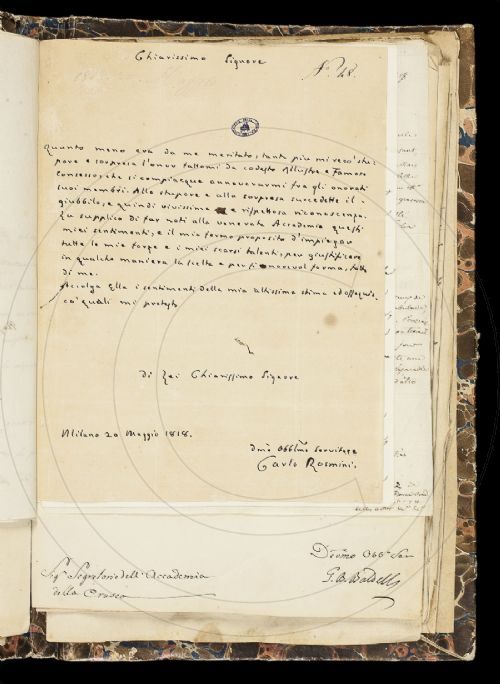 Chiarissimo Signore
N.° 48.
Quanto meno era da me meritato, tanto più mi recò stu-
pore e sorpresa l'onor fattomi da codesto Illustre e Famoso
Consesso, che si compiacque annoverarmi fra gli onorati
suoi membri. Allo stupore e alla sorpresa succedette il
giubbilo, e quindi vivissima e rispettosa riconoscenza.
La supplico di far noti alla venerata Accademia questi
miei sentimenti, e il mio fermo proposito d'impiegar
tutte le mie forze e i miei scarsi talenti, per giustificare
in qualche maniera la scelta e onorevol forma,
di me.
Accolga Ella i sentimenti della mia altissima stima ed ossequio,
co' quali mi protesto
Di Lei Chiarissimo Signore
Milano 20 Maggio 1818.
Dmo Obblmo Servitore
Carlo Rosmini.
Sigr Segretario dell'Accademia
della Crusca
Devmo Obbo Ser
G. B. Baldelli